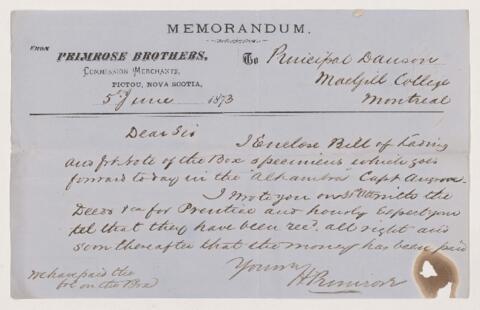 MEMORANDUM.
FROM
PRIMROSE BROTHERS,
COMMISSION MERCHANTS,
PICTOU, NOVA SCOTIA,
5 June 1873
To Principal Dawson
MacGill College
Montreal
Dear Sir
I Enclose Bill of Lading
and frt. note of the Box specimens which goes
forward to day in the "Alhambra" Capt
I wrote you on with the
Deeds &ca for Prentice and hourly Expect you
tel that they have been recd. all right and
soon thereafter that the money has been paid
Yours
H Primrose
We have paid the
frt on the Box